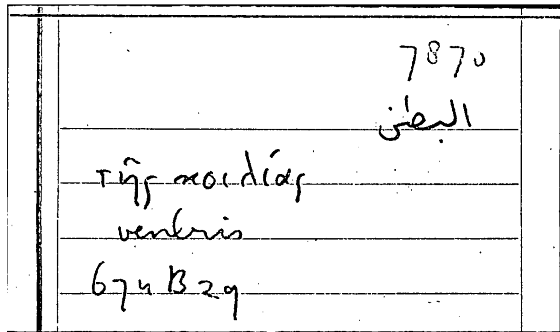 7870
البطن
τῆς κοιλίας
ventris
674 B 29